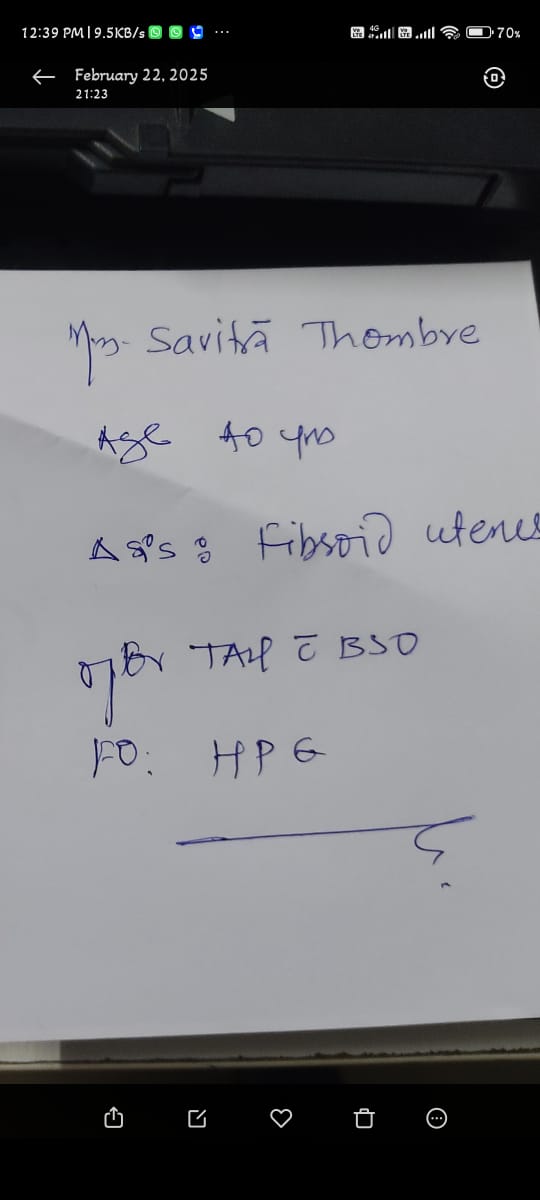 12:39 PM | 9.5KB/s ... 4G 70%
February 22, 2025
21:23
Mrs. Savitrā Thombre
Age 40 yrs
Δsis : Fibroid uterus
TAH c̄ BSO
FO: HPE